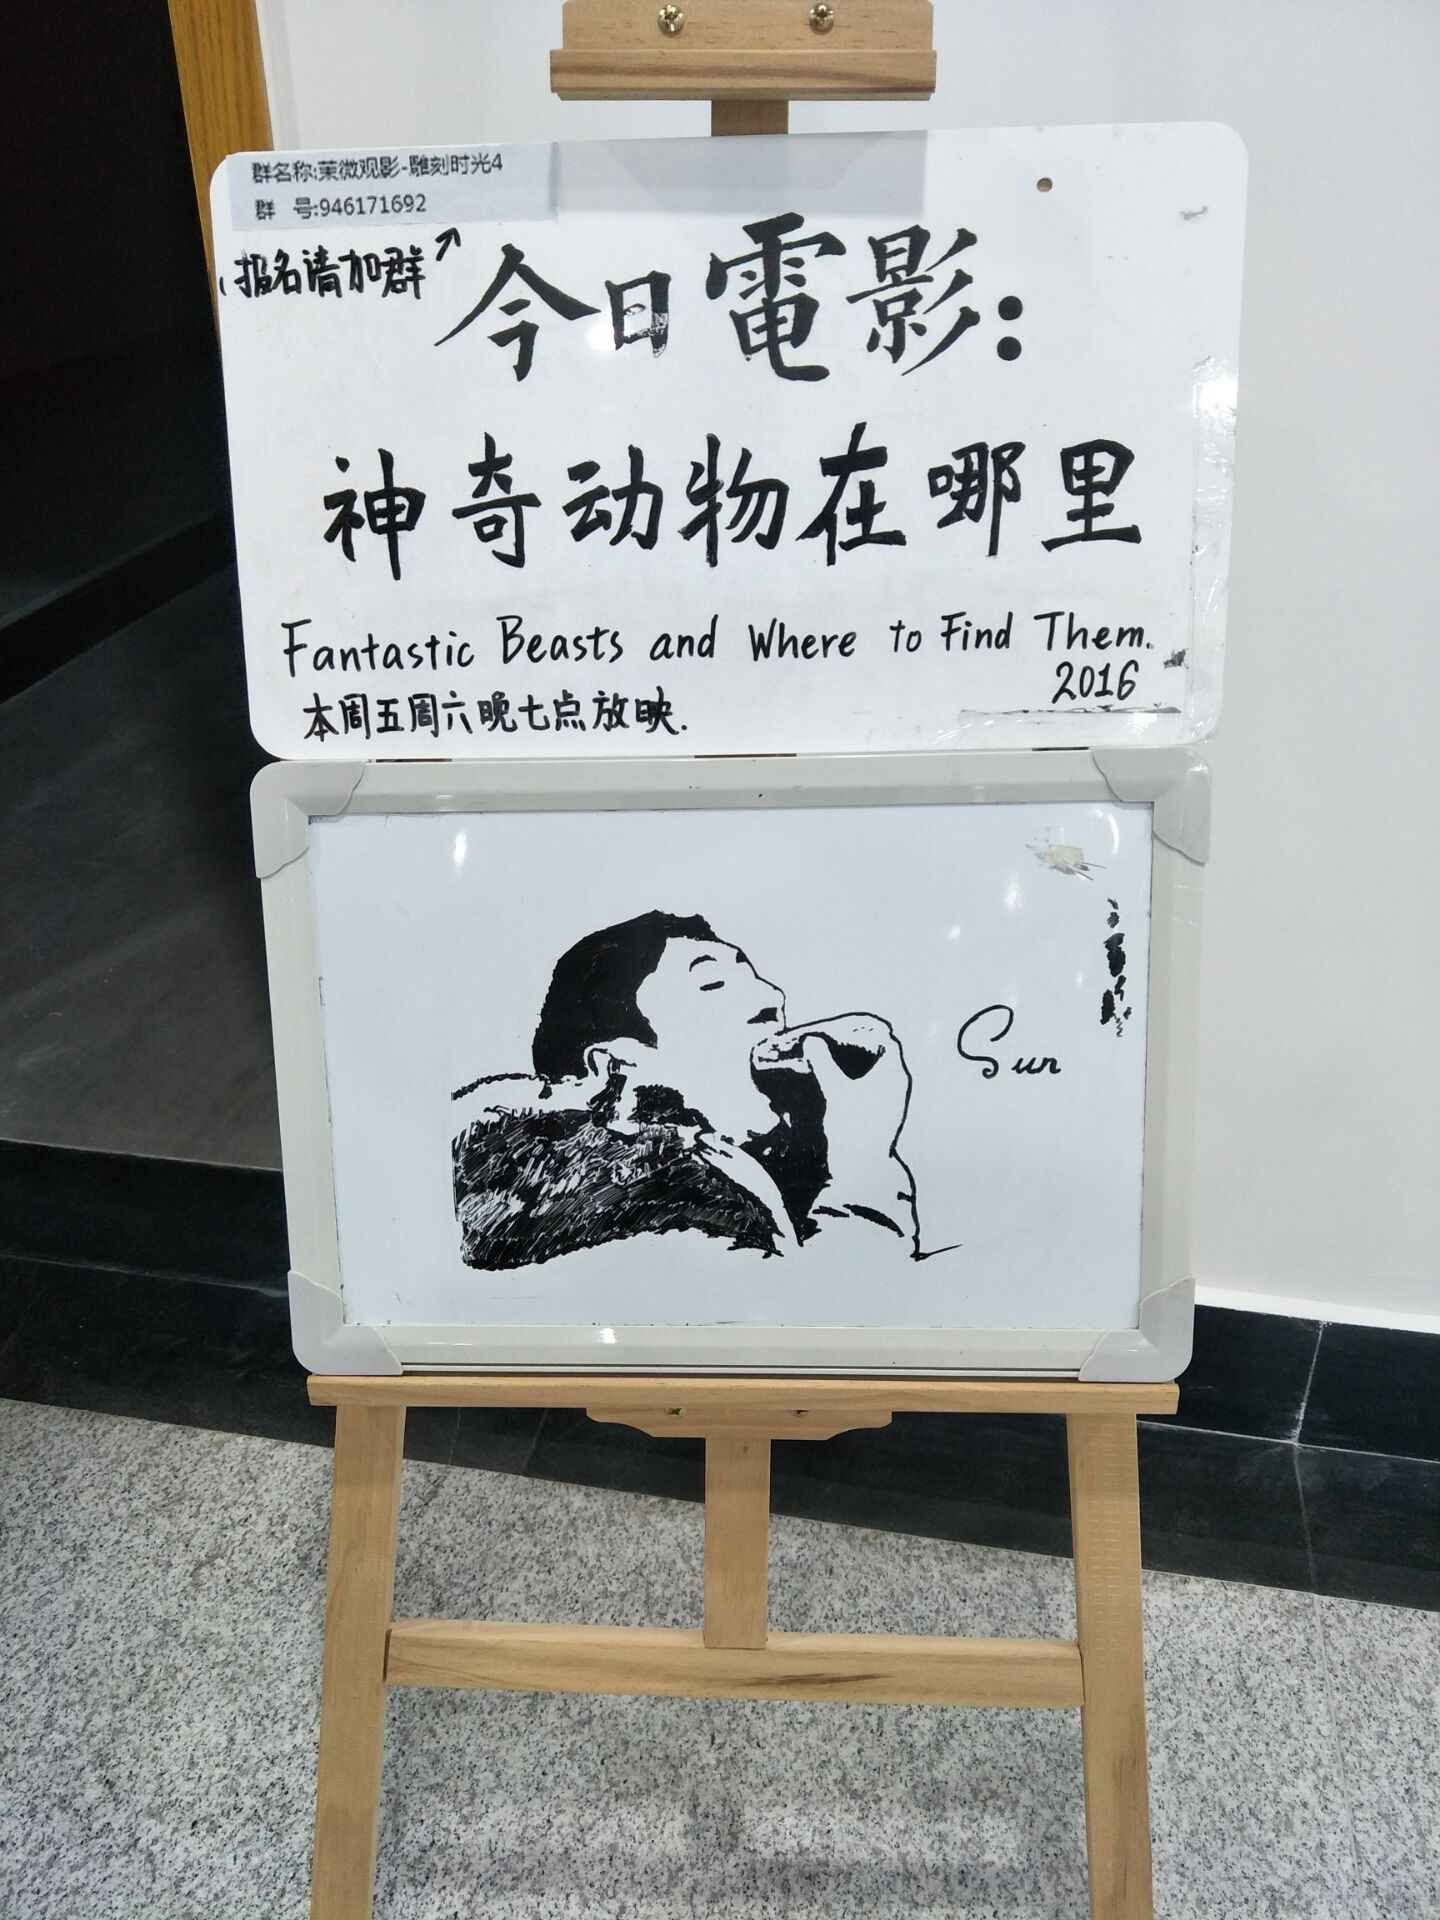 群名称:茉微观影-雕刻时光4
群 号:946171692
报名请加群
今日電影:
神奇动物在哪里
Fantastic Beasts and Where to Find Them.
2016
本周五周六晚七点放映.
Sun